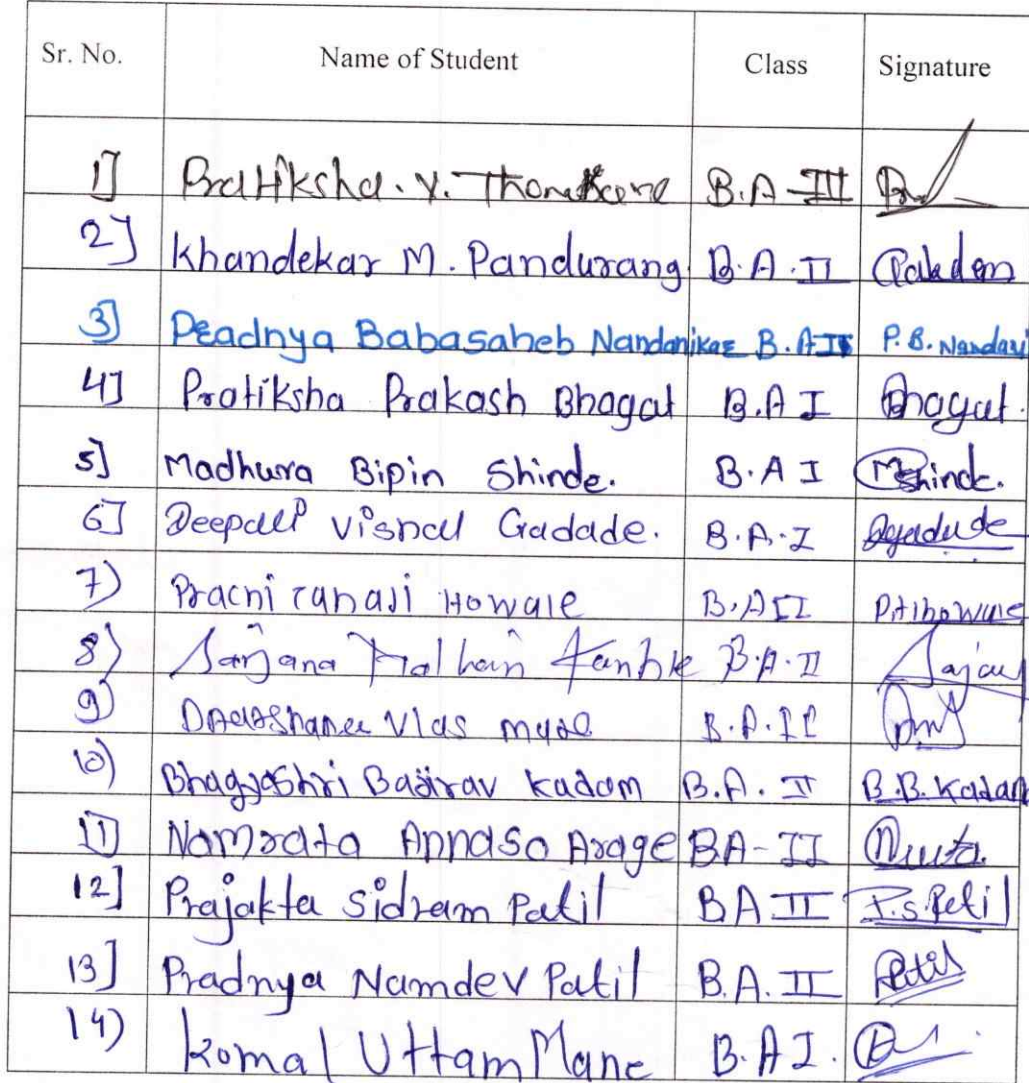 Sr. No. Name of Student Class Signature
1] Pratiksha. Y. B.A III
2] Khandekar M. Pandurang. B.A.II
3] Peadnya Babasaheb Nandanikar B.AII P.B. Nandavi
4] Pratiksha Prakash Bhagat B.A I Bhagat.
5] Madhura Bipin Shinde. B.A I MShinde.
6] Deepali Vishal Gadade. B.A.I
7) Prachi Tanaji Howale B.AII
8) Sanjana B.A.II
9) Vlas B.A.II
10) Bhagyashri Bajirav Kadam B.A. II B.B. Kadam
11] Namrata Annaso Arage BA-II
12] Prajakta Sidram Patil BA II P.S. Patil
13] Pradnya Namdev Patil B.A. II Patil
14) Komal Uttam Mane B.AI.